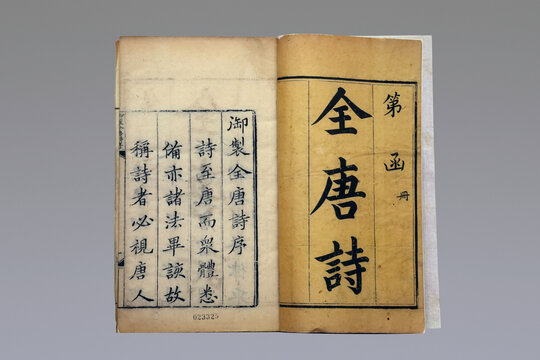 第 函 冊
全唐詩
御製全唐詩序
詩至唐而衆體悉
備亦諸法畢該故
稱詩者必視唐人
023325